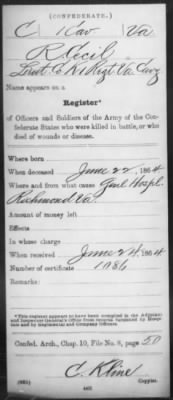 (CONFEDERATE.)
C 1 Cav Va
R Cecil
Lieut Co K 1 Regt Va Cavy
Name appears on a
Register*
of Officers and Soldiers of the Army of the Confederate States who were killed in battle, or who
died of wounds or disease.
Where born
When deceased June 22, 1864
Where and from what cause Genl Hospl.
Richmond Va.
Amount of money left
Effects
In whose charge
When received June 24, 1864
Number of certificate 1086
Remarks:
*This register appears to have been compiled in the Adjutant
and Inspector General's Office from returns furnished by Hospitals
and by Regimental and Company Officers.
Confed. Arch., Chap. 10, File No. 8, page 50
C. Kline
Copyist.